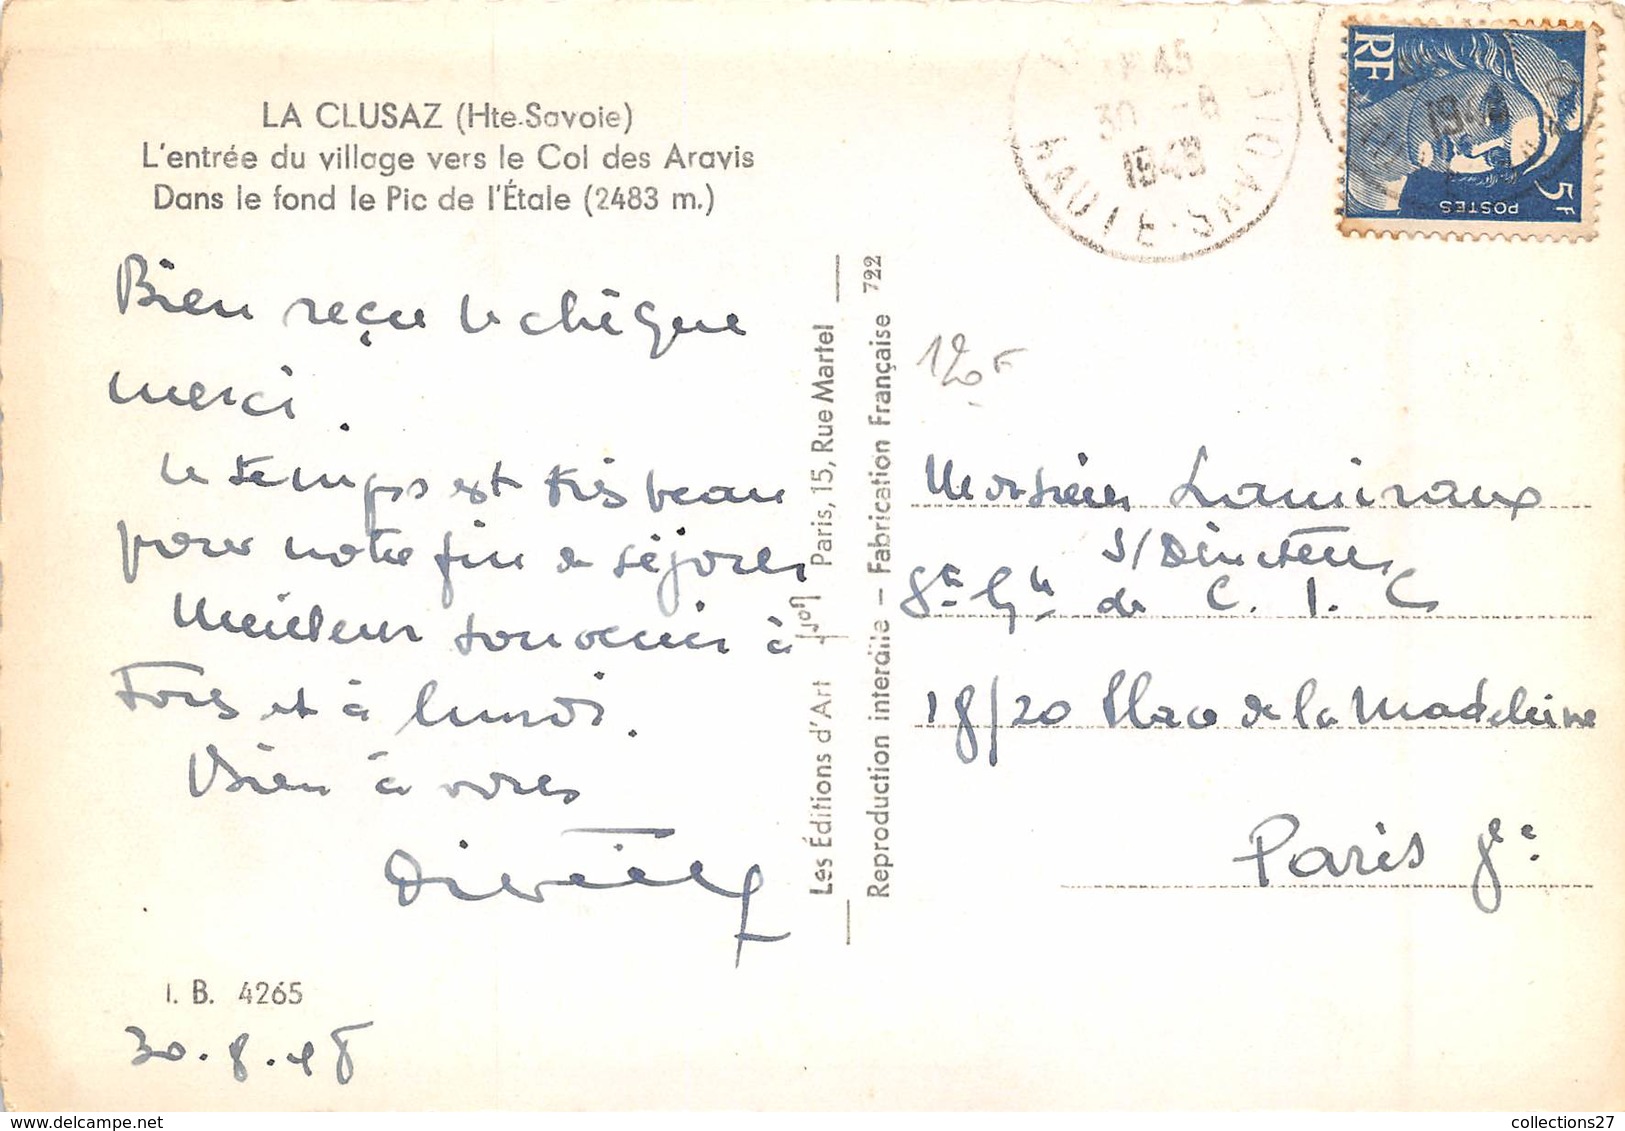 LA CLUSAZ (Hte-Savoie)
L'entrée du village vers le Col des Aravis
Dans le fond le Pic de l'Étale (2483 m.)
Bien reçu le chèque
merci.
le temps est très beau
pour notre fin de séjour
Meilleur souvenir à
tous et à lundi.
Bien à vous
I. B. 4265
30.8.48
Les Éditions d'Art Yvon Paris, 15, Rue Martel
Reproduction interdite — Fabrication Française 722
45
30 -8
1948
HAUTE-SAVOIE
RF
5F
POSTES
1948
120F
Monsieur Lamiraux
S/Directeur
de C. I. C
18/20 Place de la Madeleine
Paris 8e
collections27